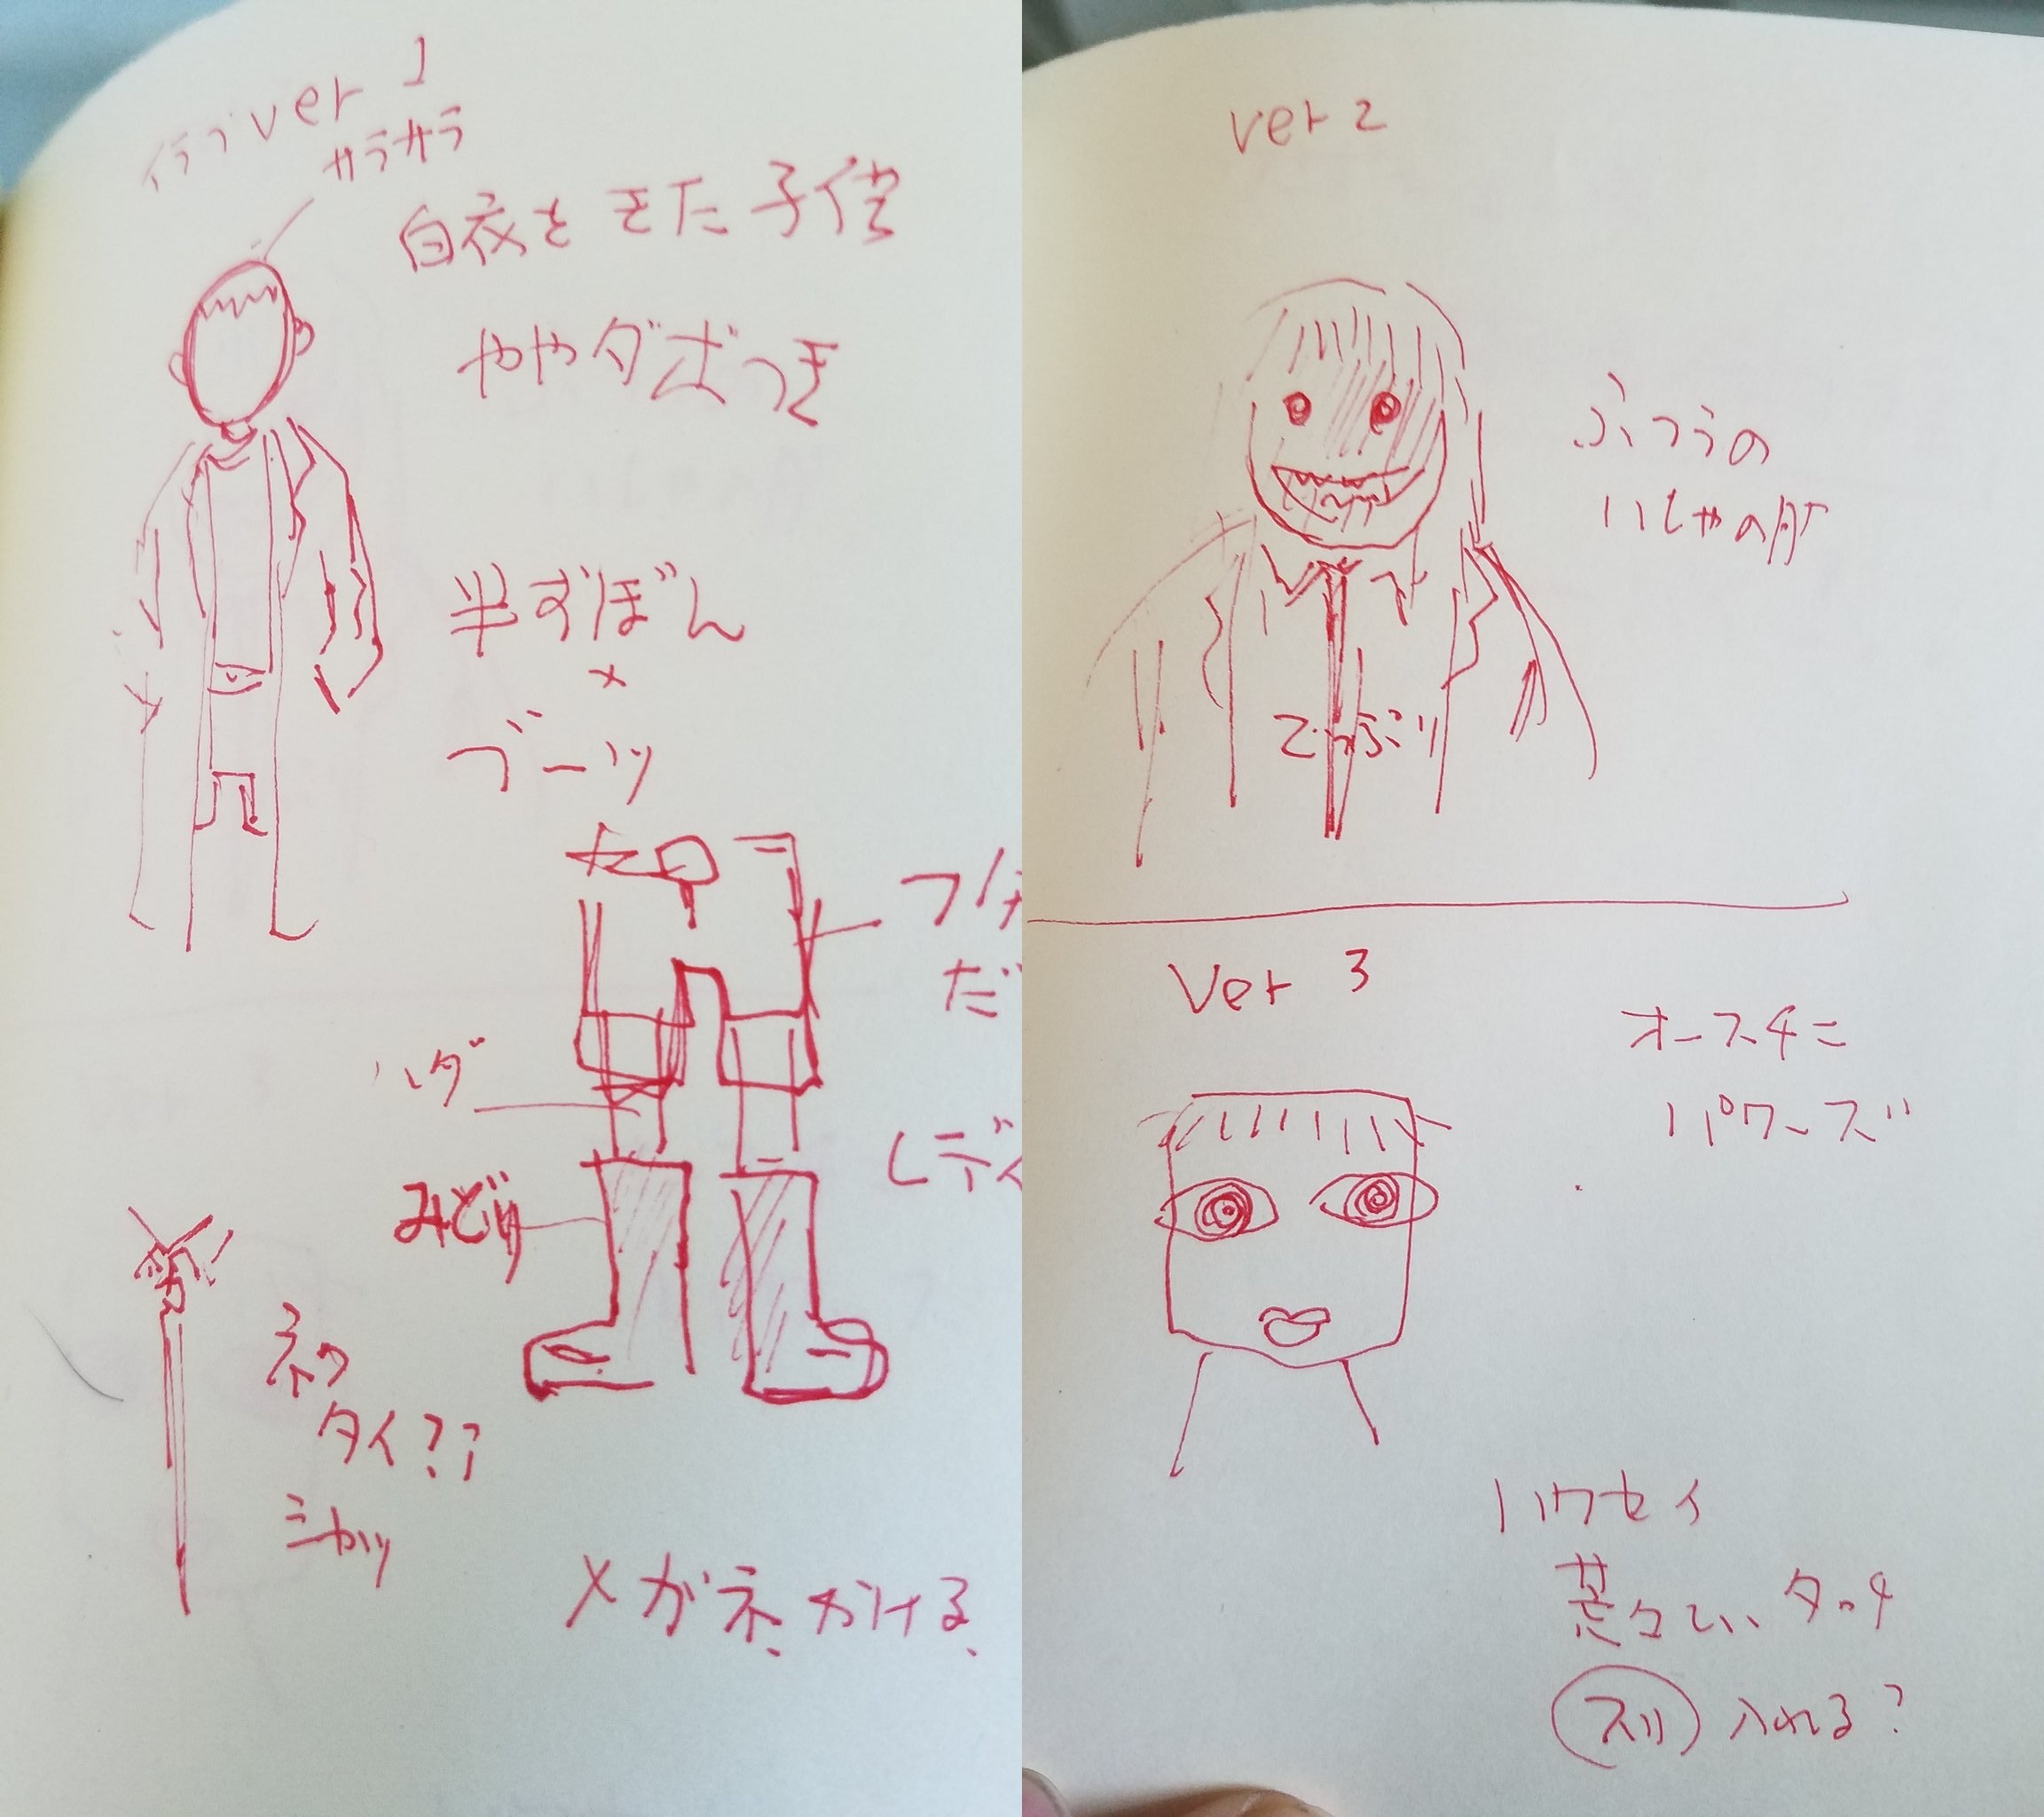 ver 1
サラサラ
白衣をきた子供
ややダボつき
半ずぼん
×
ブーツ
だ
ハダ
みどり
ネク
タイ??
メガネかける
ver 2
ふつうの
いしゃの
でっぷり
ver 3
オースチン
パワーズ
ハクセイ
荒々しいタッチ
入れる?